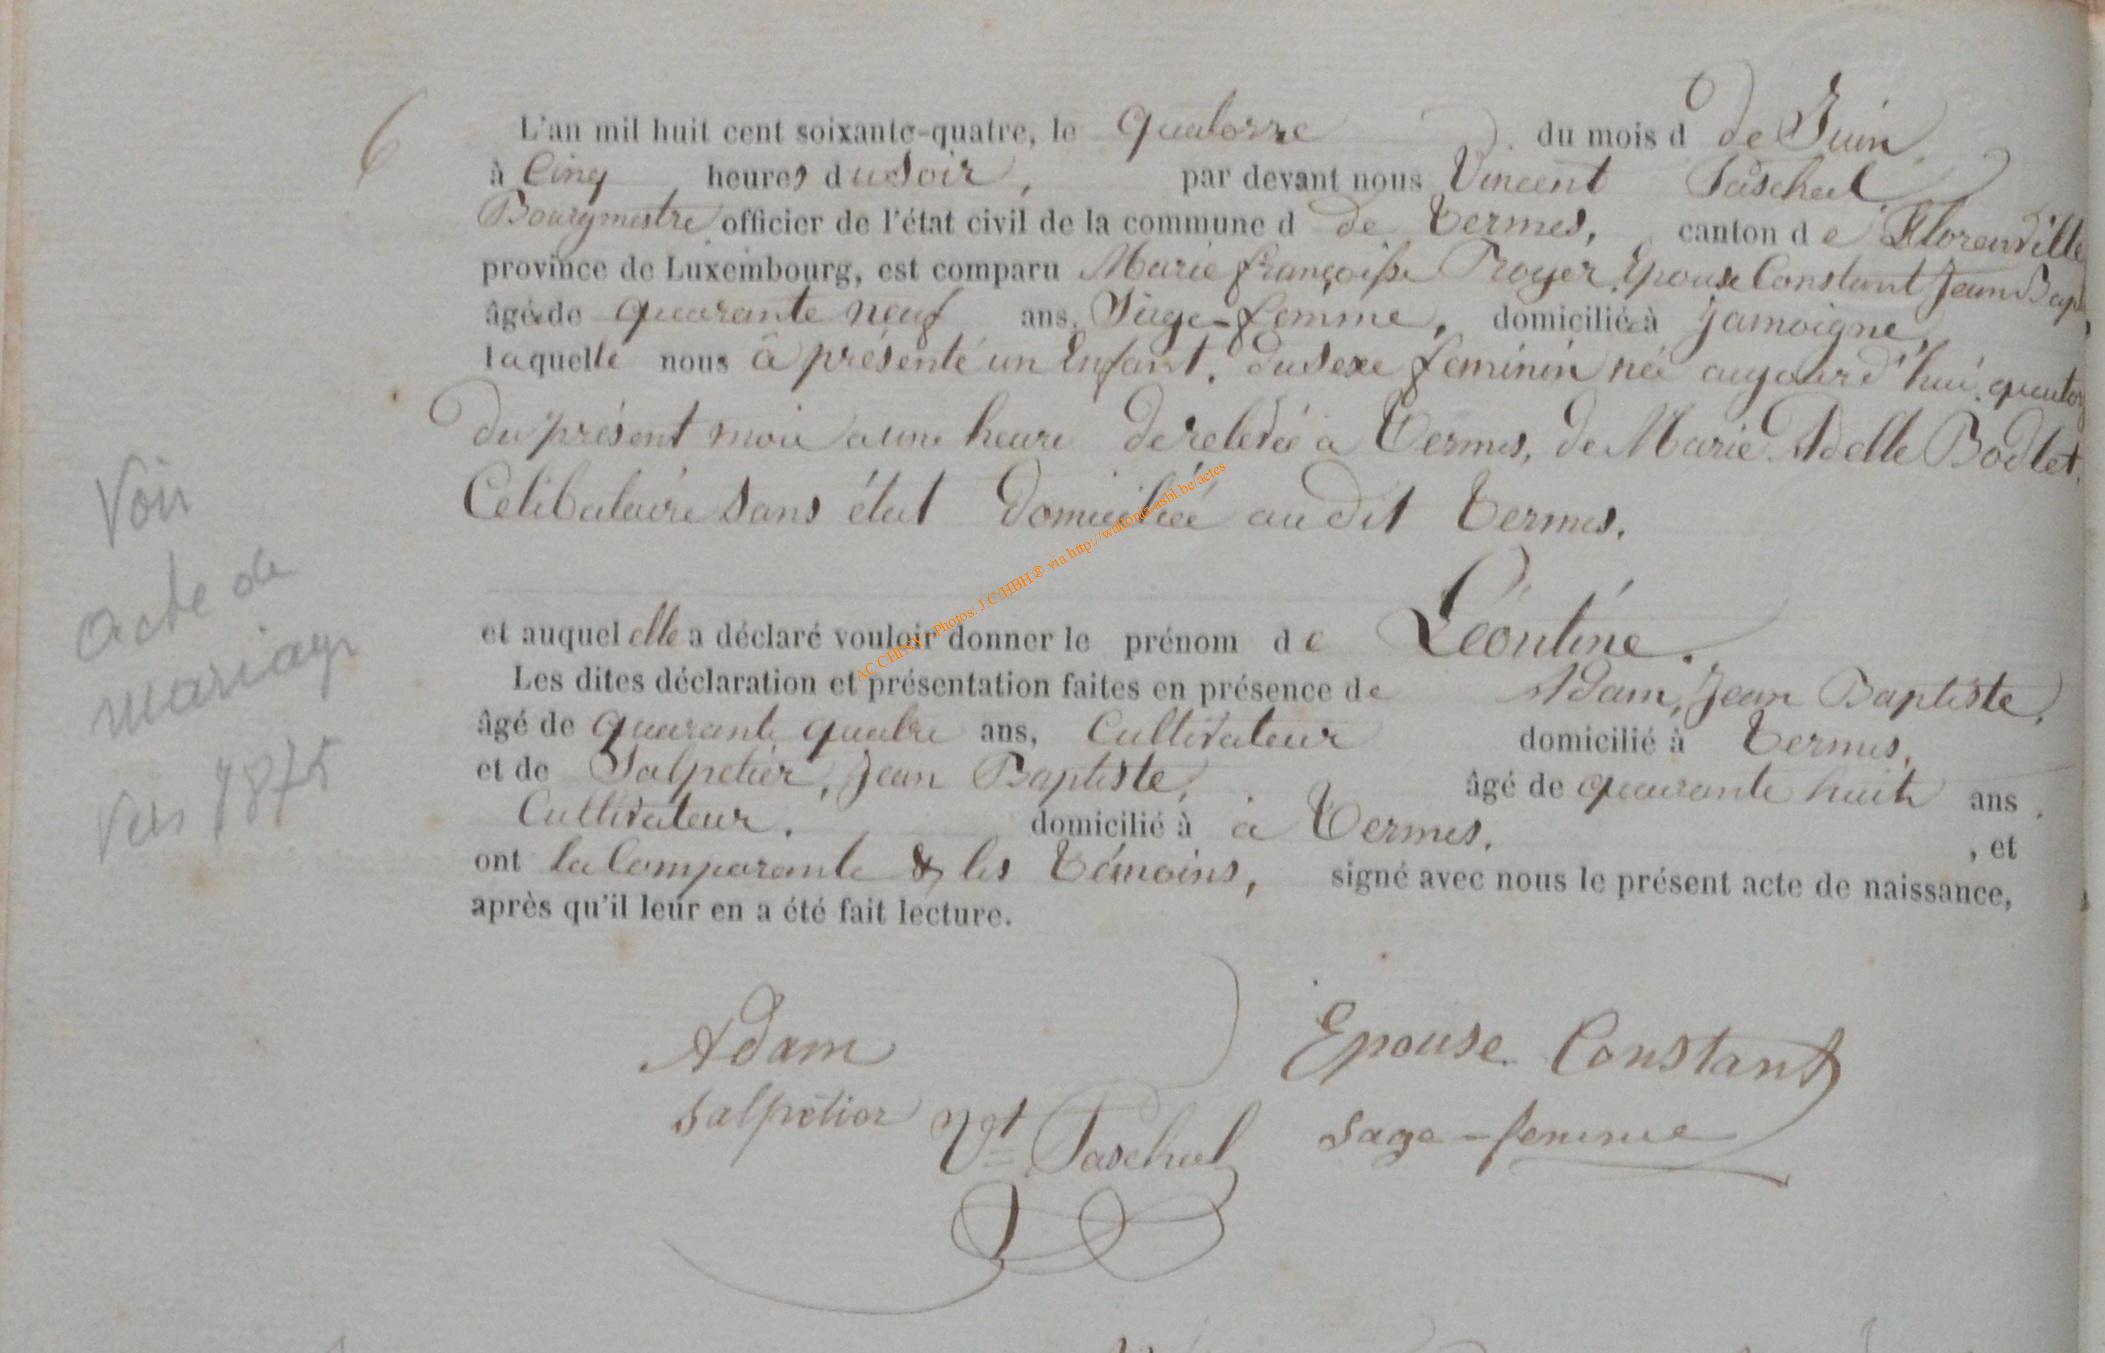 6
L'an mil huit cent soixante-quatre, le quatorze du mois d de Juin
à Cinq heures du Soir, par devant nous Vincent Paschal
Bourgmestre officier de l'état civil de la commune d de Termes, canton de Florenville
province de Luxembourg, est comparu Marie françoise Proyer, Epouse Constant Jean Bap
âgée de quarante neuf ans, Sage-femme, domiciliée à Jamoigne,
laquelle nous à présenté un Enfant, du sexe féminin née aujourd'hui quator
du présent mois a une heure de relevée à Termes, de Marie Adelle Bodlet,
Celibataire sans état domiciliée au dit Termes.
Voir
acte de
mariage
vers 1875
et auquel elle a déclaré vouloir donner le prénom de Léontine.
Les dites déclaration et présentation faites en présence de Adam, Jean Baptiste,
âgé de quarante quatre ans, Cultivateur domicilié à Termes,
et de Salpetier, Jean Baptiste, âgé de quarante huit ans,
Cultivateur. domicilié à à Termes. , et
ont la Comparante & les témoins, signé avec nous le présent acte de naissance,
après qu'il leur en a été fait lecture.
Adam
Epouse Constant
Salpétier
Vt Paschal
Sage-femme
AC CHINY. Photos. J.C/HBH ® via http://wallonia-asbl.be/actes